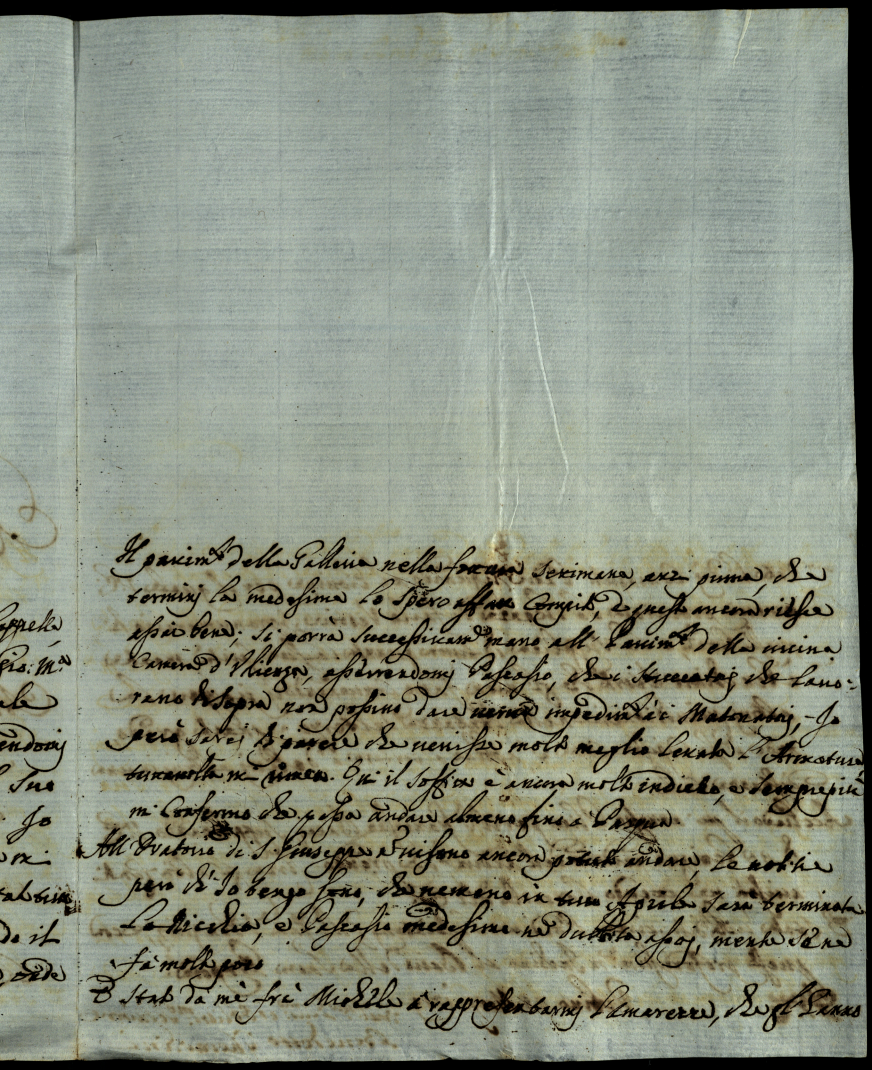 Il pavim.to della Galleria nella settimana, anzi prima, che
termini la medesima lo spero affatto compito, e questo ancora riesce
assai bene; si porrà successivam.te mano all Pavim.to della vicina
Camera d'Udienza, asserendomi Pascasio, che i stuccatoj che lavo-
rano di sopra non possino dare impedim.to a i Matonatoj, Io
però sarej di parere che venisse molto meglio levata l'Armatura
Qui il soffitto è ancora molto indietro, e sempre più
mi confermo che possa andare almeno fino a Pasqua
All Oratorio di S. Giuseppe ancora andare, le notitie
però ch'Io tengo sono, che nemeno in tutto Aprile sarà terminata
la Nicchia, e Pascasio medesimo ne dubbita assaj, mentre se ne
fà molto poco
È stato da mè frà Michele a rappresentarmj l'amarezze, che
Cappella,
Gio: M.a
ale
endomj
l suo
Io
mi
do il
onde